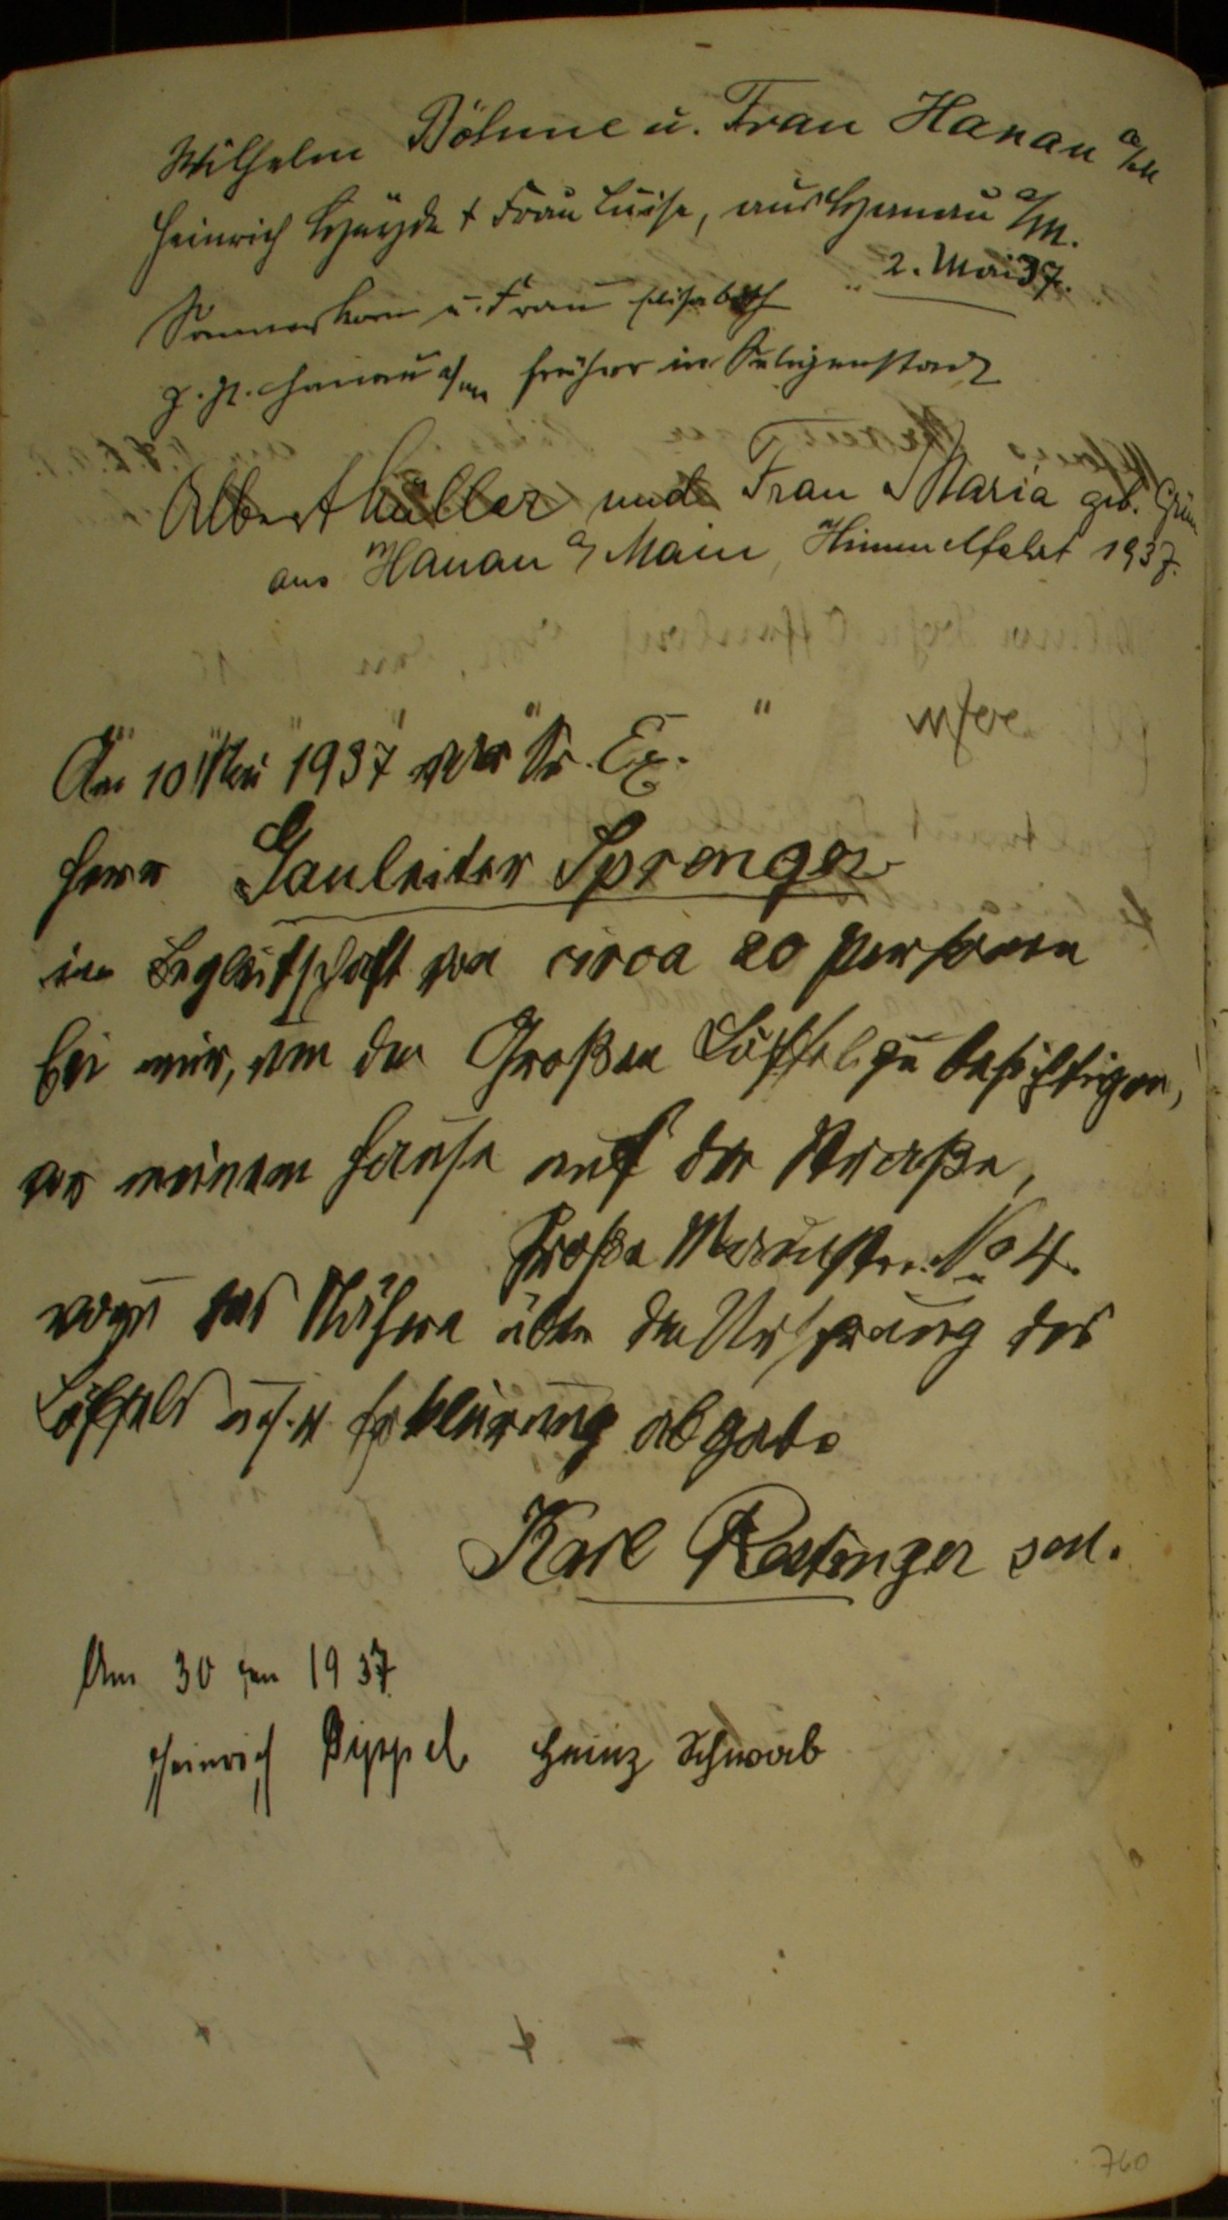 Wilhelm Böhme u. Frau Hanau a/M
Heinrich & Frau Luise, aus Hanau a/M.
2. Mai 37.
Sommerkorn u. Frau Elisabeth
z. Zt. Hanau a/M früher in Seligenstadt
Albert Müller und Frau Maria geb. Grün
aus Hanau a/Main, Himmelfahrt 1937.
Am 10 Mai 1937 war Sr. Ex.
Herr Gauleiter Sprenger
in Begleitschaft von circa 20 Personen
bei mir, um den Großen Löffel zu besichtigen,
vor meinem Hause auf der Straße,
Große Maingstr. No 4.
wozu das Nähere über den Ursprung des
Löffels Erklärung abgab.
Karl sen.
Am 30 1937
Heinrich Dippel Heinz Schwab
760